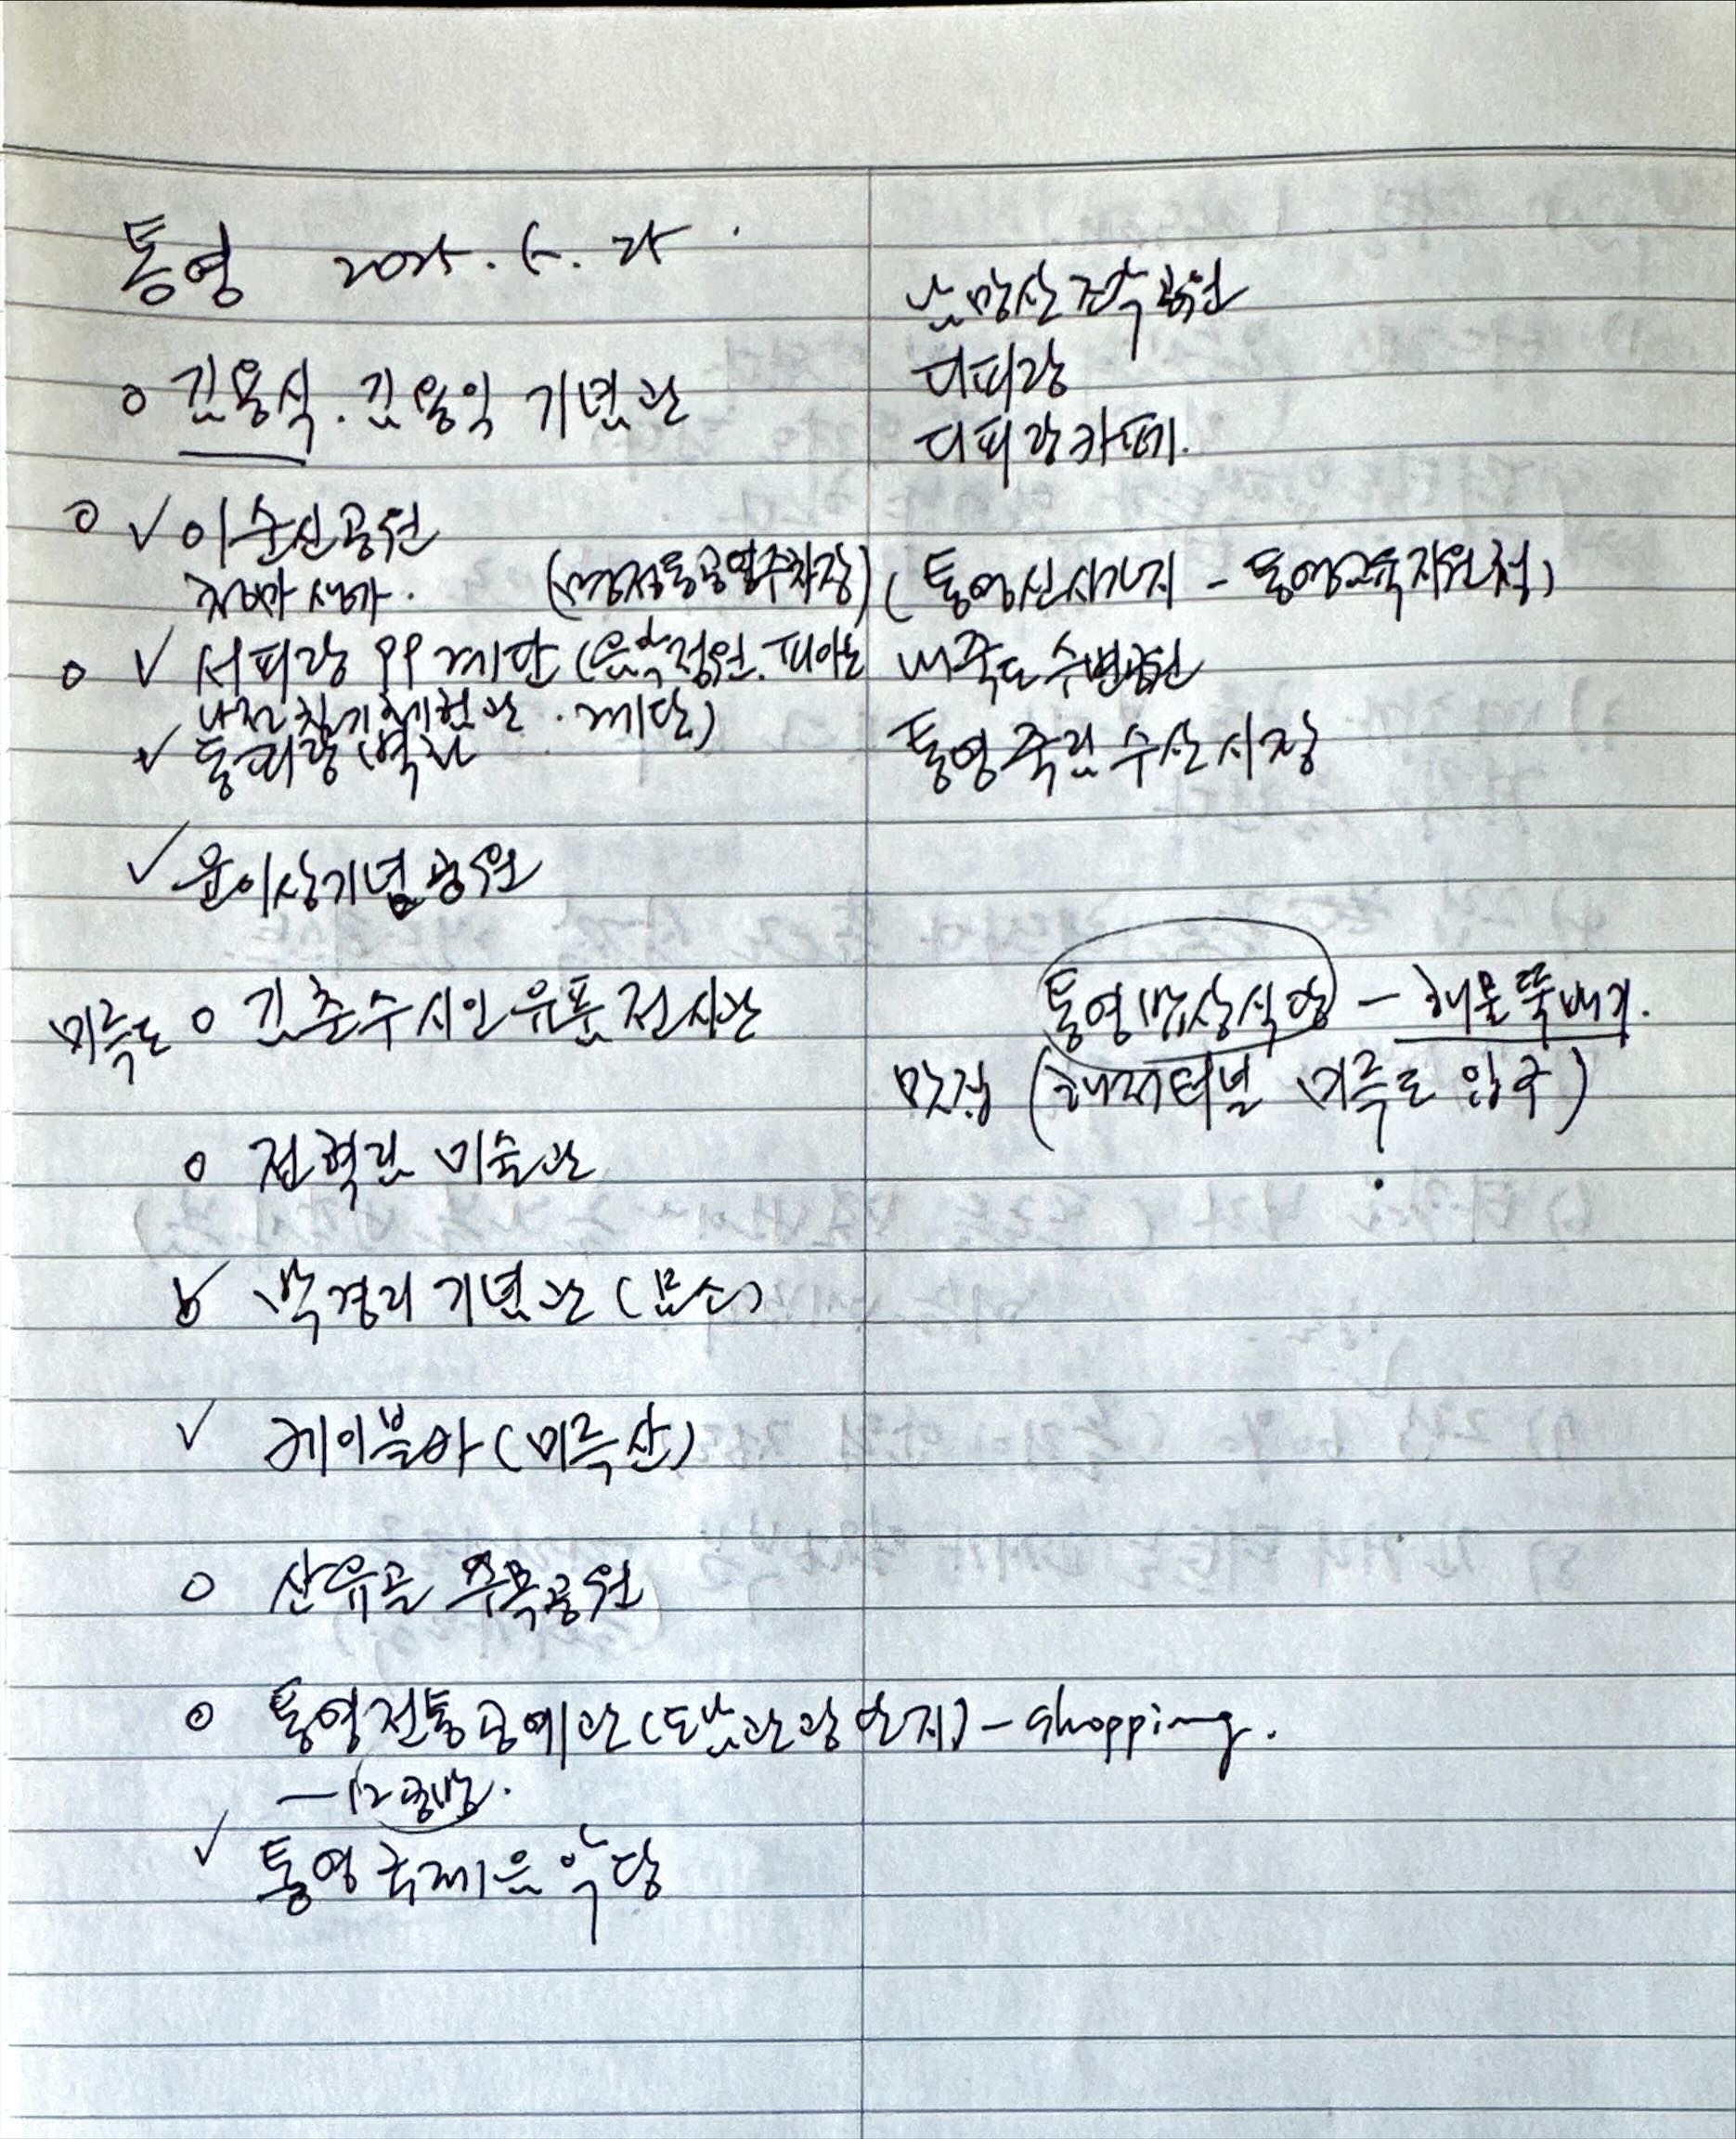 통영 2025. 6. 25.
○ 김용식.김용익 기념관
○ ✓ 이순신공원
생가. (명정동공영주차장)
○ ✓ 서피랑 99계단 (음악정원. 피아노
나전칠기체험관. 계단)
✓ 동피랑벽화
✓ 윤이상기념공원
미륵도 ○ 김춘수시인유품전시관
○ 전혁림 미술관
✓ 박경리기념관(묘소)
✓ 케이블카(미륵산)
○ 산유골 수목공원
○ 통영전통공예관(도남관광단지) - shopping.
- 12공방.
✓ 통영국제음악당
남망산조각공원
디피랑
디피랑카페.
(통영신사터지 - 통영교육지원청)
내죽도수변공원
통영죽림수산시장
통영밥상식당 - 해물뚝배기.
맛집 (해저터널 미륵도 입구)